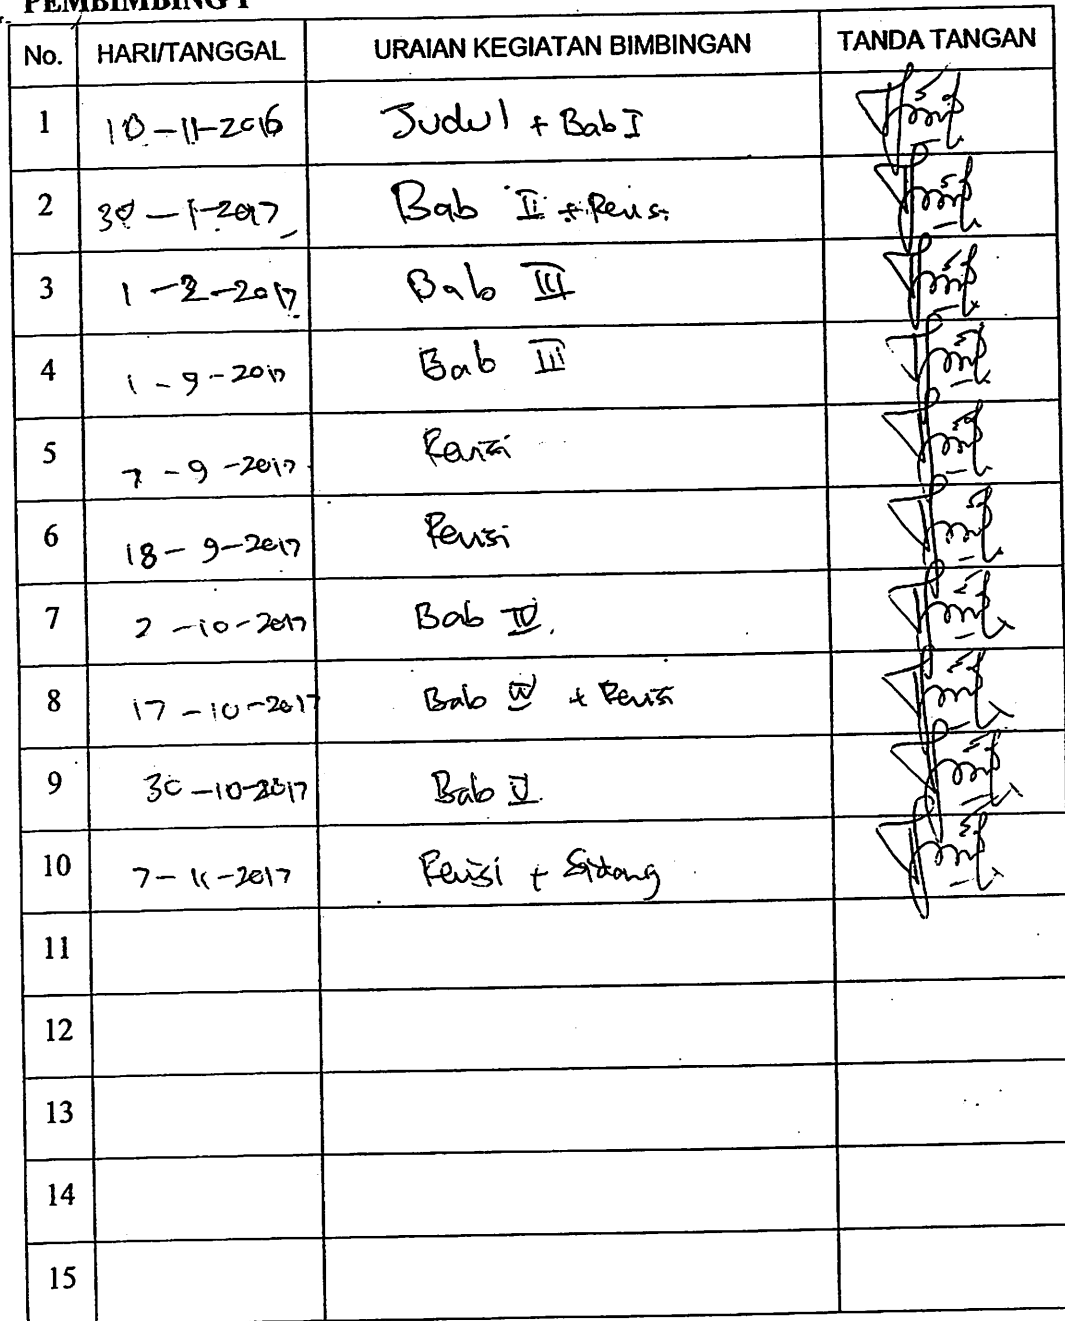 PEMBIMBING I
No. HARI/TANGGAL URAIAN KEGIATAN BIMBINGAN TANDA TANGAN
1 10-11-2016 Judul + Bab I
2 30-1-2017 Bab II + Revisi
3 1-2-2017 Bab III
4 1-9-2017 Bab III
5 7-9-2017 Revisi
6 18-9-2017 Revisi
7 2-10-2017 Bab IV.
8 17-10-2017 Bab IV + Revisi
9 30-10-2017 Bab V.
10 7-11-2017 Revisi + Sidang
11
12
13
14
15